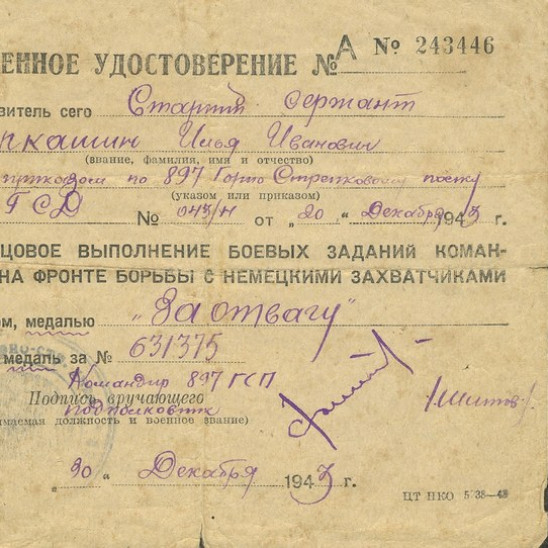 ЕННОЕ УДОСТОВЕРЕНИЕ № А № 243446
витель сего Старший сержант
ркашин Илья Иванович
(звание, фамилия, имя и отчество)
приказом по 897 Горно Стрелковому полку
(указом или приказом)
ГСД № 043/н от „20“ Декабря 1943 г.
ЦОВОЕ ВЫПОЛНЕНИЕ БОЕВЫХ ЗАДАНИЙ КОМАН-
НА ФРОНТЕ БОРЬБЫ С НЕМЕЦКИМИ ЗАХВАТЧИКАМИ
ом, медалью „За отвагу"
медаль за № 631375
Командир 897 ГСП
Подпись вручающего
подполковник
имаемая должность и военное звание)
„30“ Декабря 1943 г.
ЦТ НКО